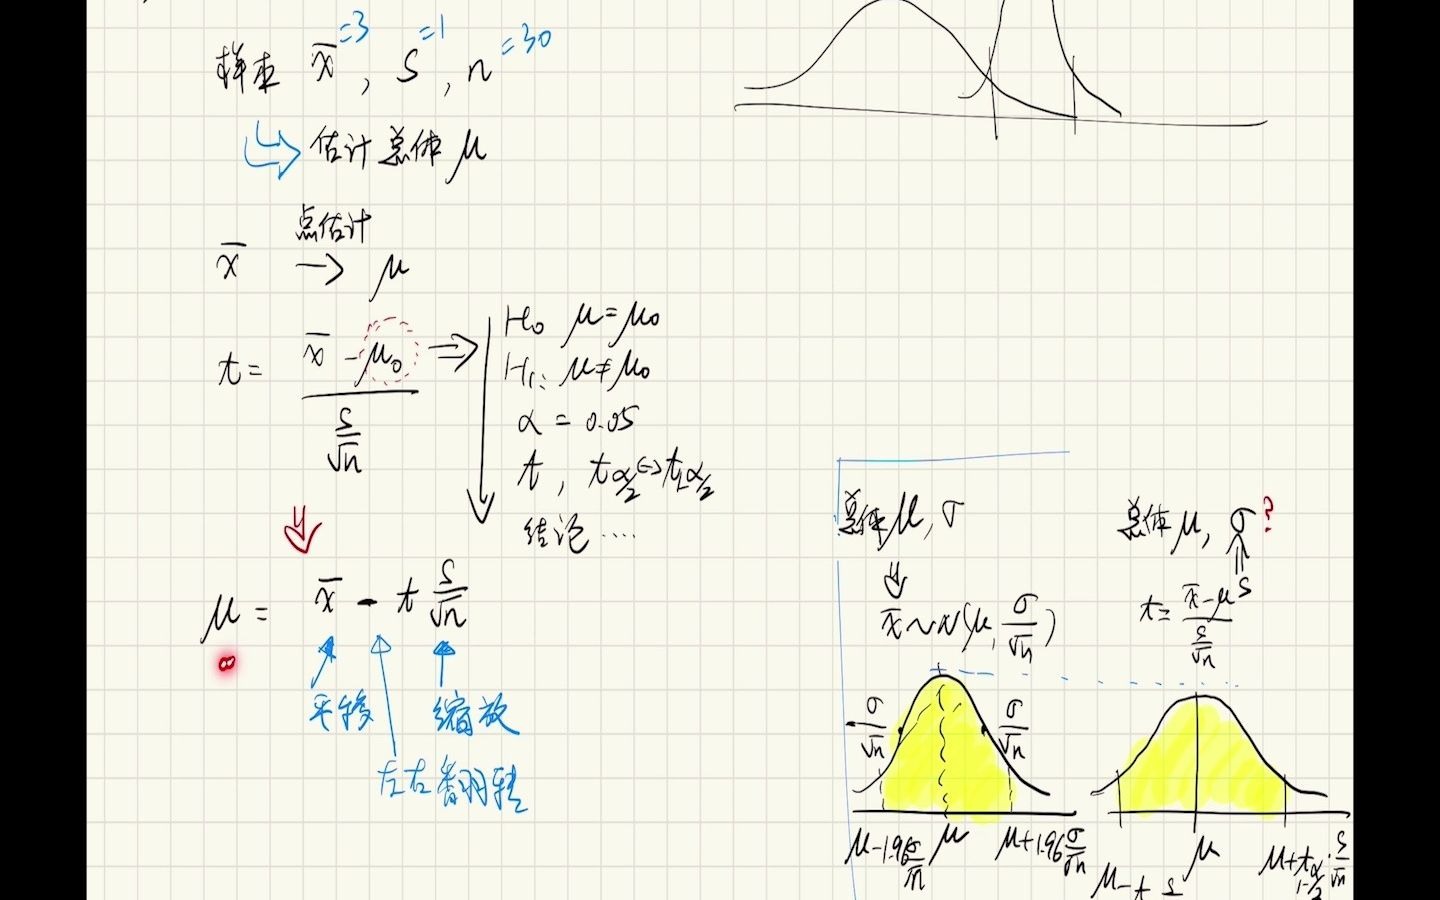 样本 x̄ =3, S =1, n =30
估计总体 μ
点估计
x̄ → μ
t = (x̄ - μ₀) / (S/√n) ⇒
H₀ μ = μ₀
H₁: μ ≠ μ₀
α = 0.05
t, t α/2 ↔ t 1-α/2
结论 ....
μ = x̄ - t S/√n
平移
缩放
左右翻转
总体 μ, σ
x̄ ~ N(μ, σ/√n)
σ/√n
σ/√n
μ-1.96 σ/√n
μ
μ+1.96 σ/√n
总体 μ, σ ?
S
t = (x̄-μ) / (S/√n)
μ- t S
μ
μ+t 1-α/2 · S/√n